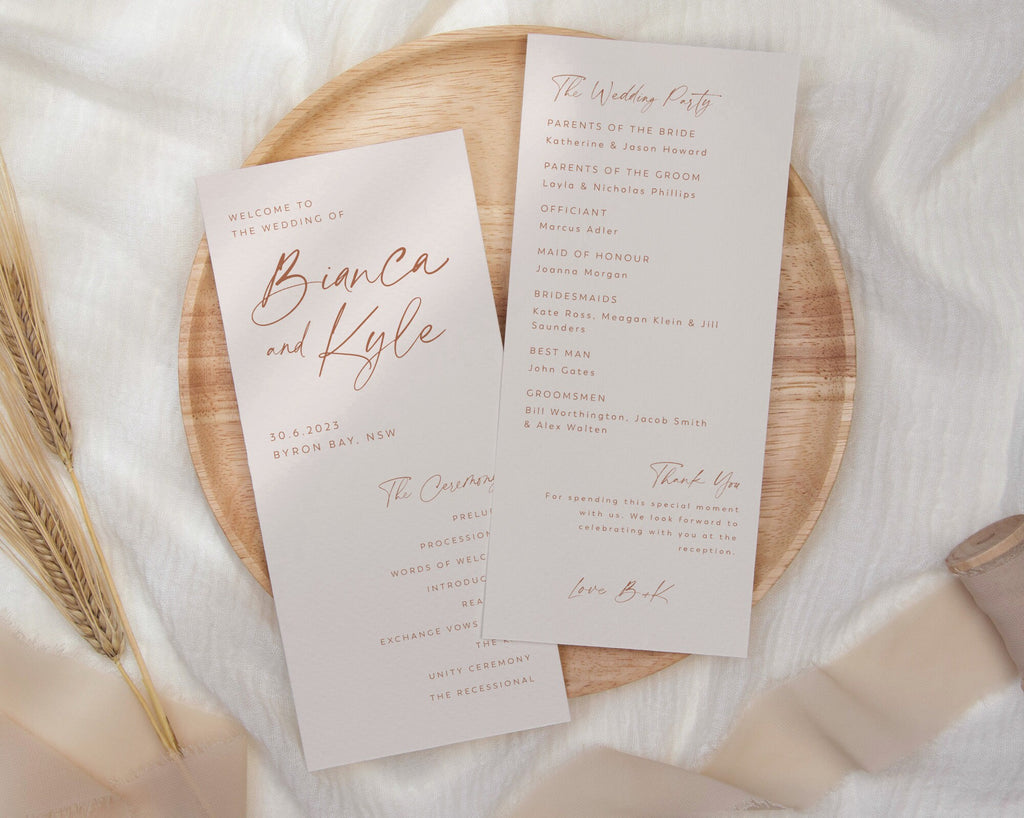 WELCOME TO
THE WEDDING OF
Bianca
and Kyle
30.6.2023
BYRON BAY, NSW
The Ceremony
WORDS OF
EXCHANGE VOWS
THE
UNITY CEREMONY
THE RECESSIONAL
The Wedding Party
PARENTS OF THE BRIDE
Katherine & Jason Howard
PARENTS OF THE GROOM
Layla & Nicholas Phillips
OFFICIANT
Marcus Adler
MAID OF HONOUR
Joanna Morgan
BRIDESMAIDS
Kate Ross, Meagan Klein & Jill
Saunders
BEST MAN
John Gates
GROOMSMEN
Bill Worthington, Jacob Smith
& Alex Walten
Thank You
For spending this special moment
with us. We look forward to
celebrating with you at the
reception.
Love B+K